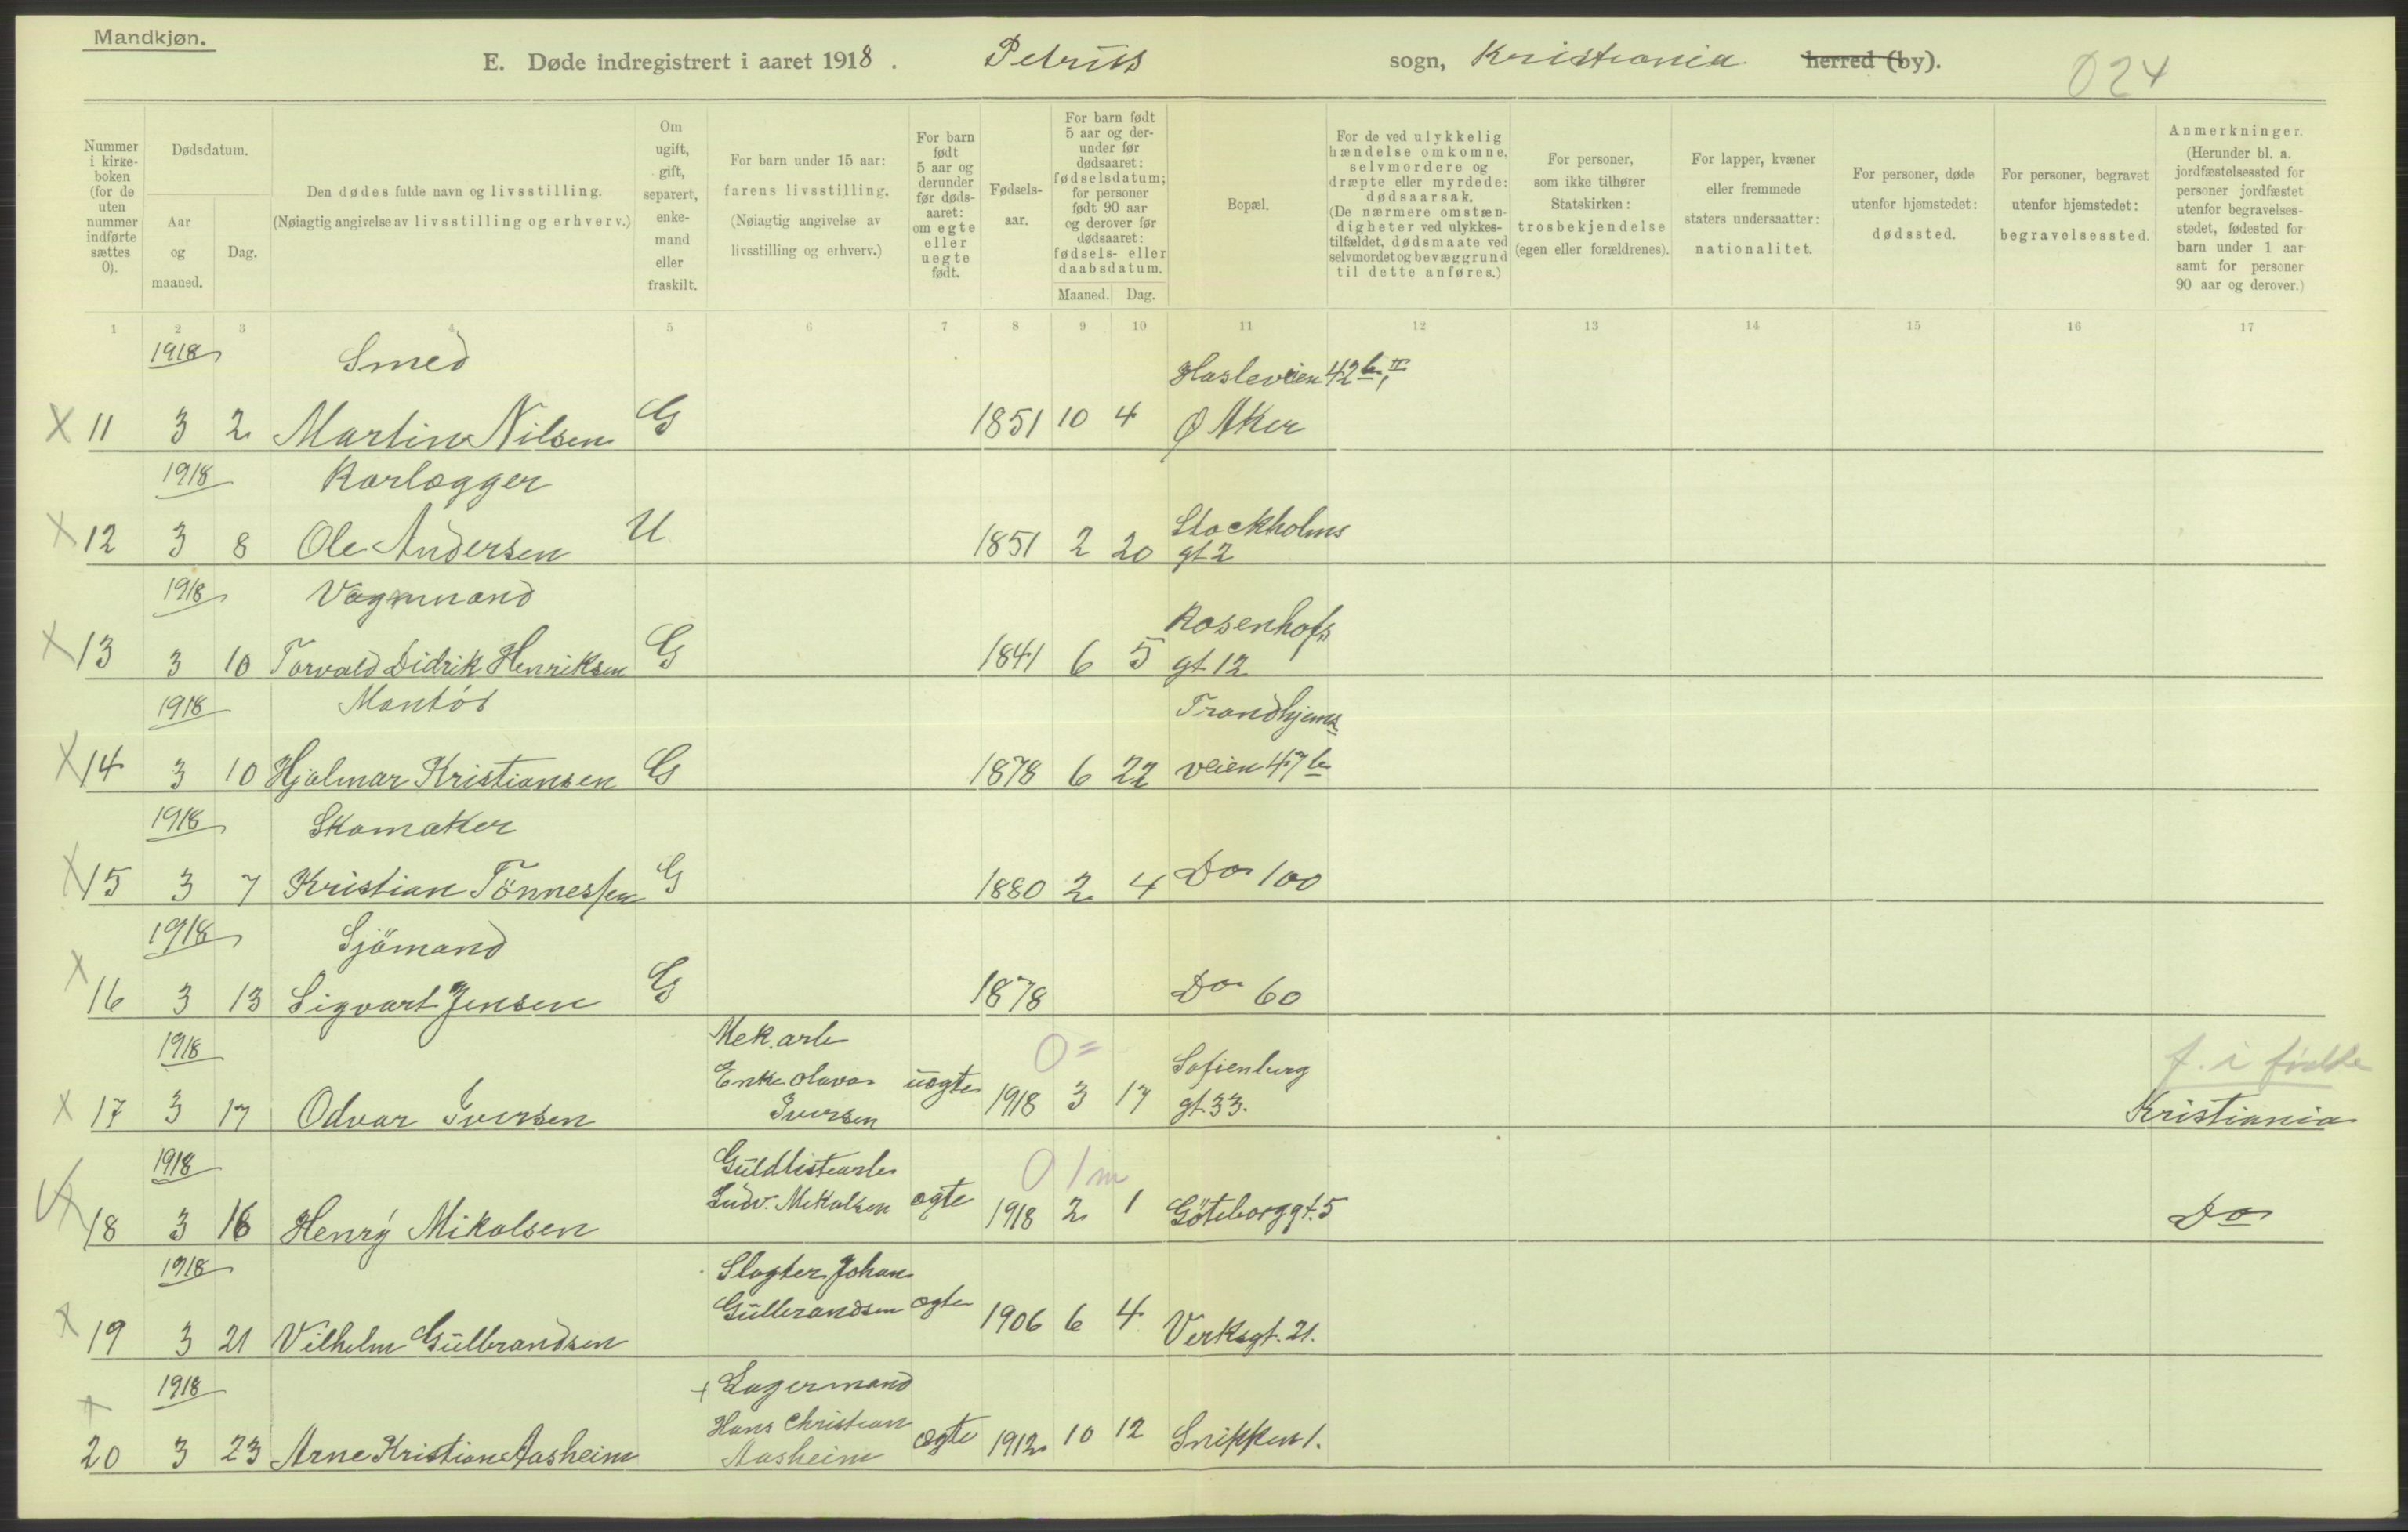 Mandkjøn.
E. Døde indregistrert i aaret 1918. Petrus sogn, Kristiania herred (by).
024
Nummer i kirkeboken (for de uten nummer indførte sættes 0).
Dødsdatum.
Aar og maaned.
Dag.
Den dødes fulde navn og livsstilling.
(Nøiagtig angivelse av livsstilling og erhverv.)
Om ugift, gift, separert, enkemand eller fraskilt.
For barn under 15 aar: farens livsstilling.
(Nøiagtig angivelse av livsstilling og erhverv.)
For barn født 5 aar og derunder før dødsaaret: om egte eller uegte født.
Fødselsaar.
For barn født 5 aar og derunder før dødsaaret: fødselsdatum; for personer født 90 aar og derover før dødsaaret: fødsels- eller daabsdatum.
Maaned. Dag.
Bopæl.
For de ved ulykkelig hændelse omkomne, selvmordere og dræpte eller myrdede: dødsaarsak.
(De nærmere omstændigheter ved ulykkestilfældet, dødsmaate ved selvmordet og bevæggrund til dette anføres.)
For personer, som ikke tilhører Statskirken: trosbekjendelse (egen eller forældrenes).
For lapper, kvæner eller fremmede staters undersaatter: nationalitet.
For personer, døde utenfor hjemstedet: dødssted.
For personer, begravet utenfor hjemstedet: begravelsessted.
Anmerkninger.
(Herunder bl. a. jordfæstelsessted for personer jordfæstet utenfor begravelsesstedet, fødested for barn under 1 aar samt for personer 90 aar og derover.)
1 2 3 4 5 6 7 8 9 10 11 12 13 14 15 16 17
1918 Smed Haslevien 42 b, II
X 11 3 2 Martin Nilsen G 1851 10 4 Ø Aker
1918 Rørlægger
X 12 3 8 Ole Andersen U 1851 2 20 Stockholms gt 2
1918 Vognmand
X 13 3 10 Torvald Didrik Henriksen G 1841 6 5 Rosenhofs gt 12
1918 Montør Trondhjems
X 14 3 10 Hjalmar Kristiansen G 1878 6 22 veien 47 b
1918 Skomaker
X 15 3 7 Kristian Tönnessen G 1880 2 4 Do 100
1918 Sjömand
X 16 3 13 Sigvart Jensen G 1878 Do 60
1918 Mek. arb 0 = Sofienberg f. i
X 17 3 17 Odvar Iversen Iversen uegte 1918 3 17 gt. 33. Kristiania
1918 Guldlistearb 0 1 m
X 18 3 16 Henrÿ Mikalsen Ludv. Mikalsen egte 1918 2 1 Göteborg gt. 5 Do
1918 Slagter Johan
X 19 3 21 Vilhelm Gulbrandsen Gulbrandsen egte 1906 6 4 Verksgt. 21.
1918 + Lagermand
X 20 3 23 Arne Kristian Aasheim Hans Christian Aasheim egte 1912 10 12 Snippen 1.